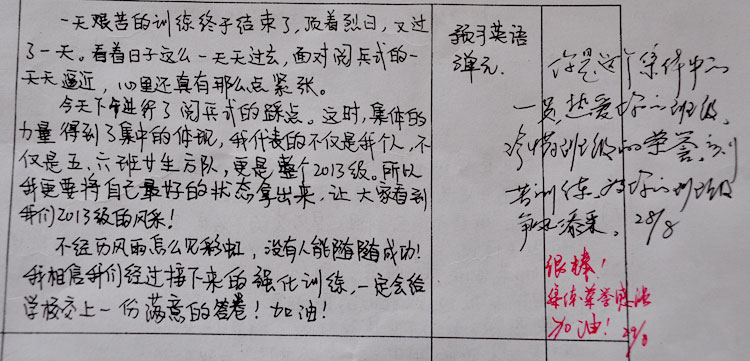 一天艰苦的训练终于结束了,顶着烈日,又过
了一天。看着日子这么一天天过去,面对阅兵式的一
天天逼近,心里还真有那么点紧张。
今天下午进行了阅兵式的踩点。这时,集体的
力量得到了集中的体现,我代表的不仅是我个人,不
仅是五、六班女生方队,更是整个2013级。所以
我更要将自己最好的状态拿出来,让大家看到
我们2013级的风采!
不经历风雨怎么见彩虹,没有人能随随成功!
我相信我们经过接下来的强化训练,一定会给
学校交上一份满意的答卷!加油!
预习英语
单元.
你是这个集体中的
一员,热爱你的班级,
珍惜班级的荣誉,刻
苦训练,为你的班级
争光添采。28/8
很棒!
集体荣誉感强
加油!